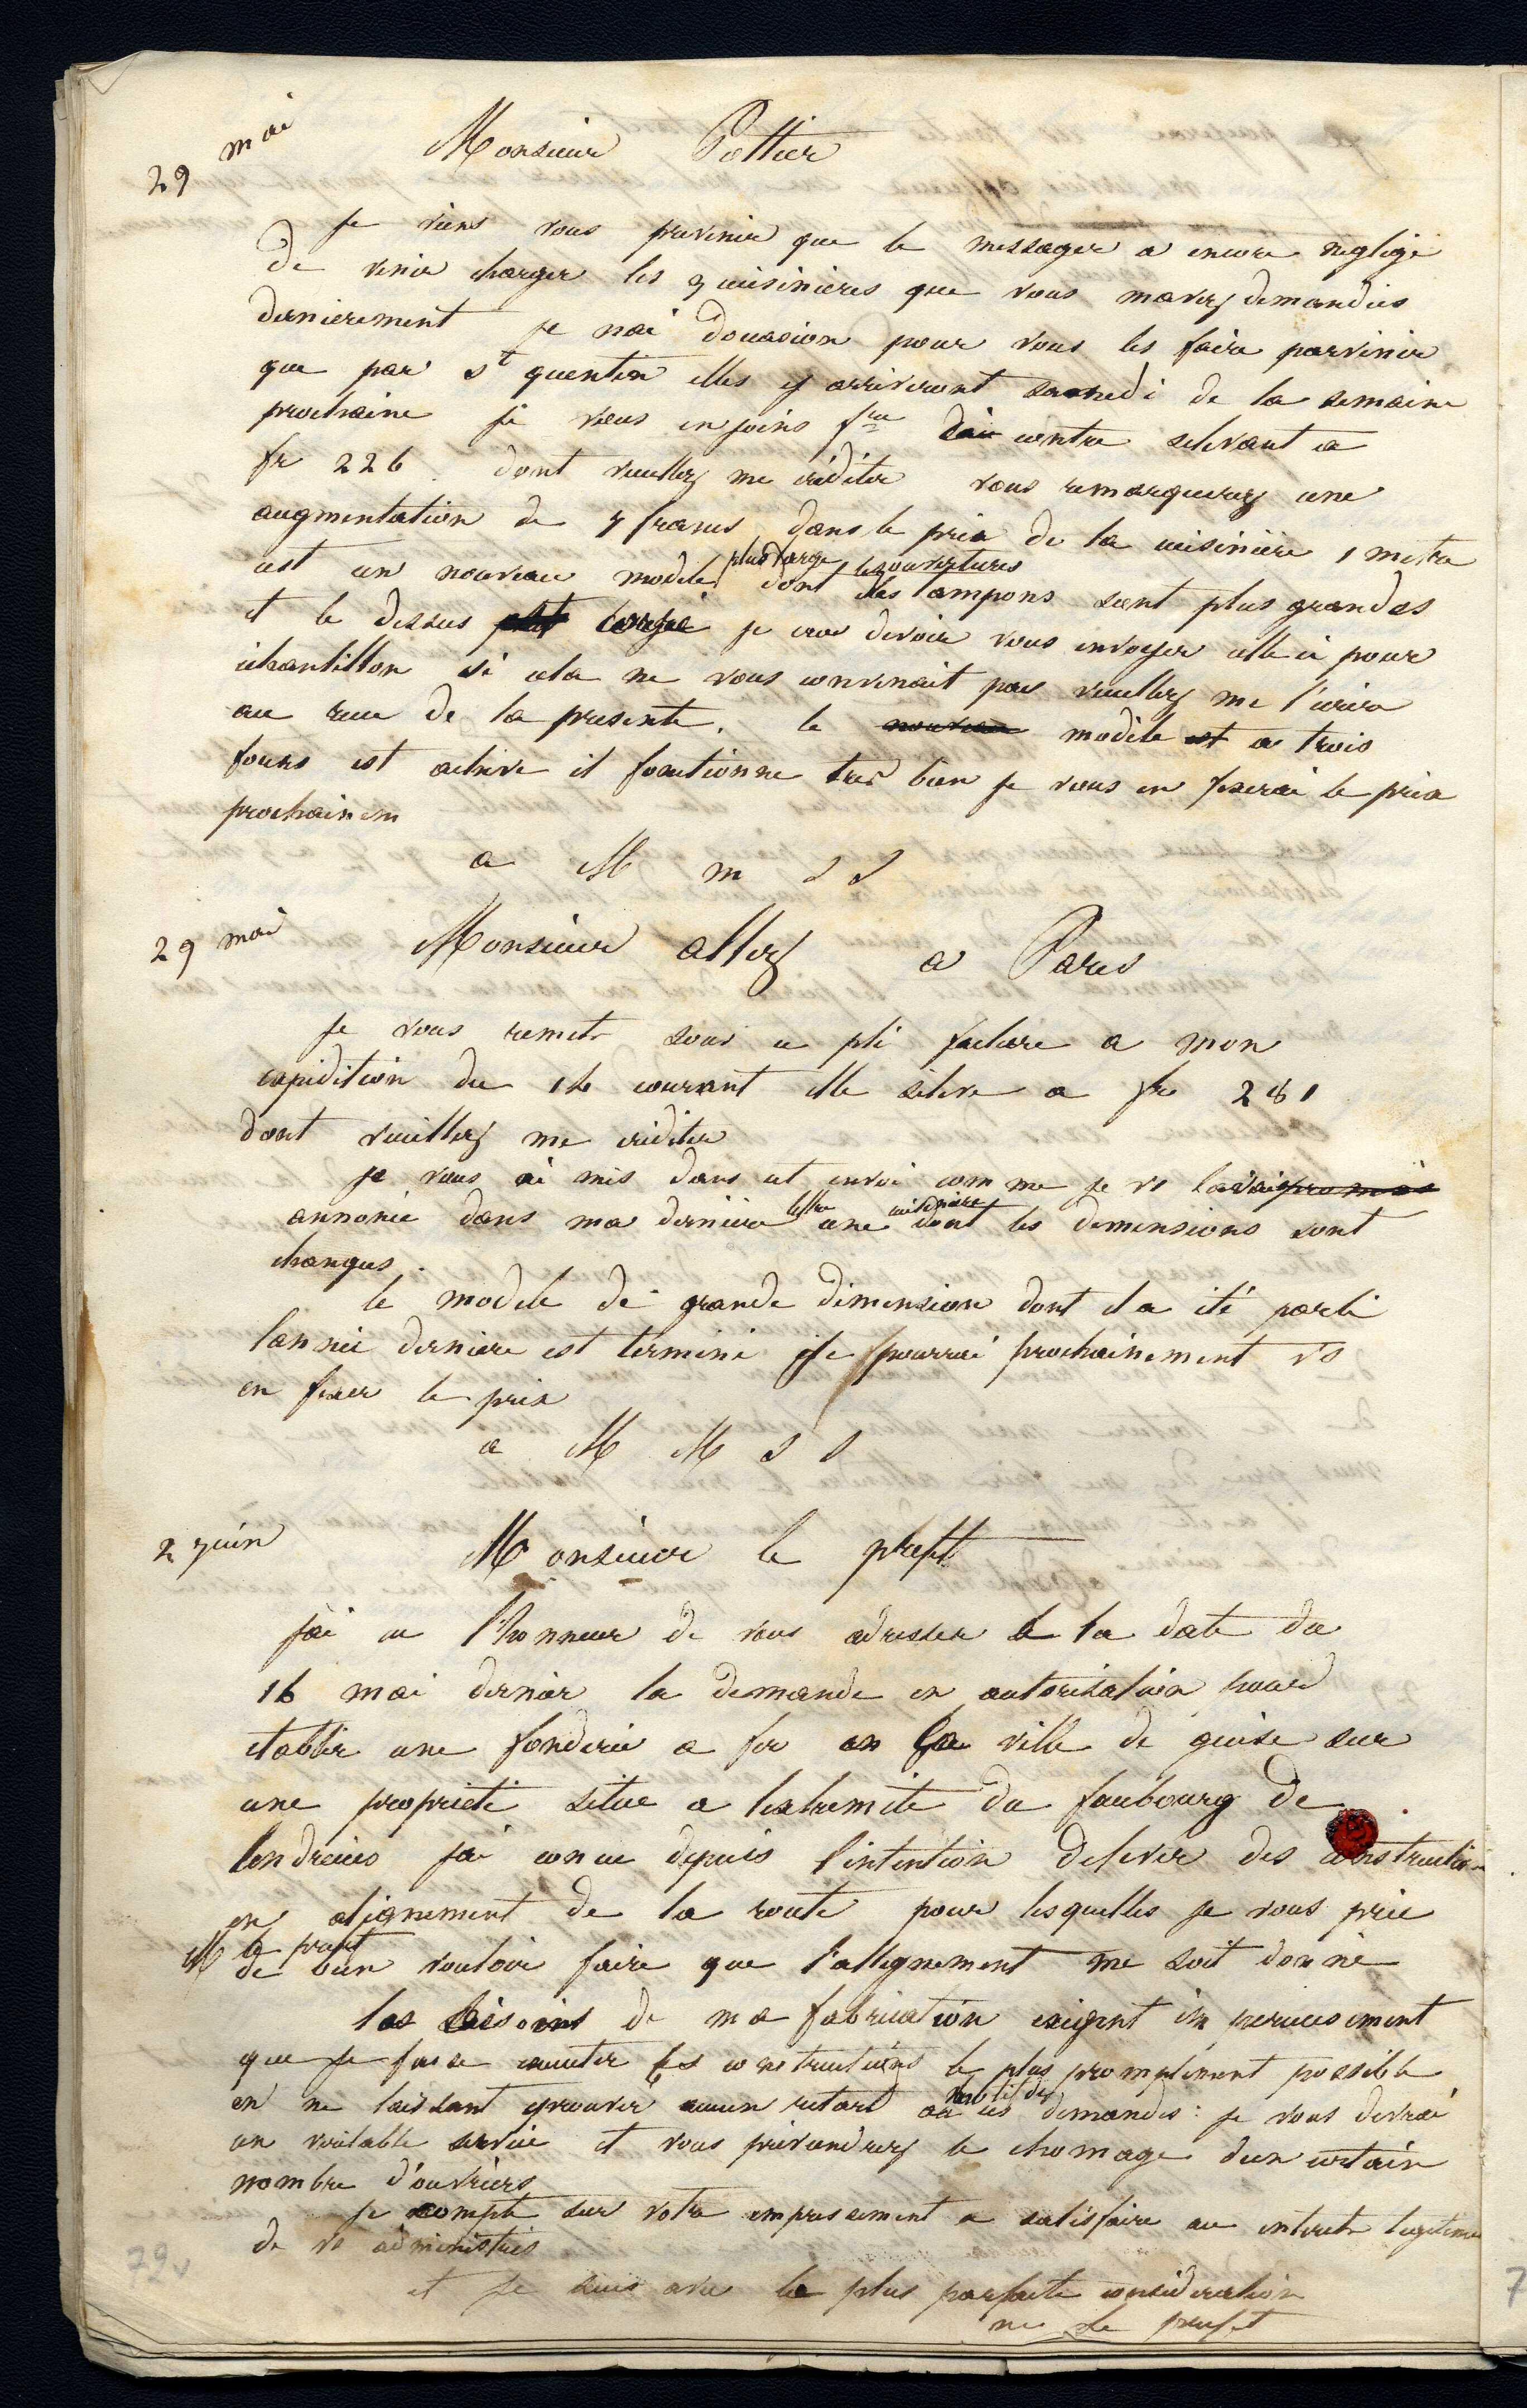 29 mai
Monsieur Pottier
Je viens vous prevenir que le messager a encore negligé
de venir charger les 3 cuisinieres que vous mavez demandées
dernierement je nai doccasion pour vous les faire parvenir
que par st quentin elles y arriveront samedi de la semaine
prochaine je vous en joins fre ci contre selevant a
fr 226 dont veuillez me créditer vous remarquerez une
augmentation de 7 francs dans le prix de la cuisinière 1 metre
cest un nouveau modele plus large dont les ouvertures des tampons sont plus grandes
et le dessus plus large je croi devoir vous envoyer celle ci pour
échantillon si cela ne vous convenait pas veuillez me l'ecrire
au recu de la presente. le nouveau modèle est a trois
fours est achevé il fonctionne tres bien je vous en fixerai le prix
prochainem
a M m S S
29 mai
Monsieur allez a Paris
Je vous remets sous ce pli facture a mon
expédition du 16 courant elle selève a fr 281
dont veuillez me créditer
je vous ai mis dans cet envoi comme je vs lavais promis
annoncé dans ma dernière lettre une cuisiniere dont les dimensions sont
changees.
le modele de grande dimension dont il a été parlé
lannée derniere est terminé je pourrai prochainement vs
en fixer le prix
a M M S S
2 juin
Monsieur le prefet
jai eu l'honneur de vous adresser a la date du
16 mai dernier la demande en autorisation pour
etablir une fonderie a fer en la ville de guise sur
une propriete située a lextremite du faubourg de
landrecies jai concu depuis l'intention delever des construction
en alignement de la route pour lesquelles je vous prie
M le prefet
de bien vouloir faire que l'allignement me soit donné
les besoins de ma fabrication exigent impérieusement
que je fasse executer les constructions le plus promptement possible
en ne laissant eprouver aucun retard au motif de ces demandes : je vous devrai
un veritable service et vous préviendrez le chomage dun certain
nombre d'ouvriers
je compte sur votre empressement a satisfaire au interets legitimes
de vs administrés
et je suis avec la plus parfaite consideration
mr le prefet
79v
7